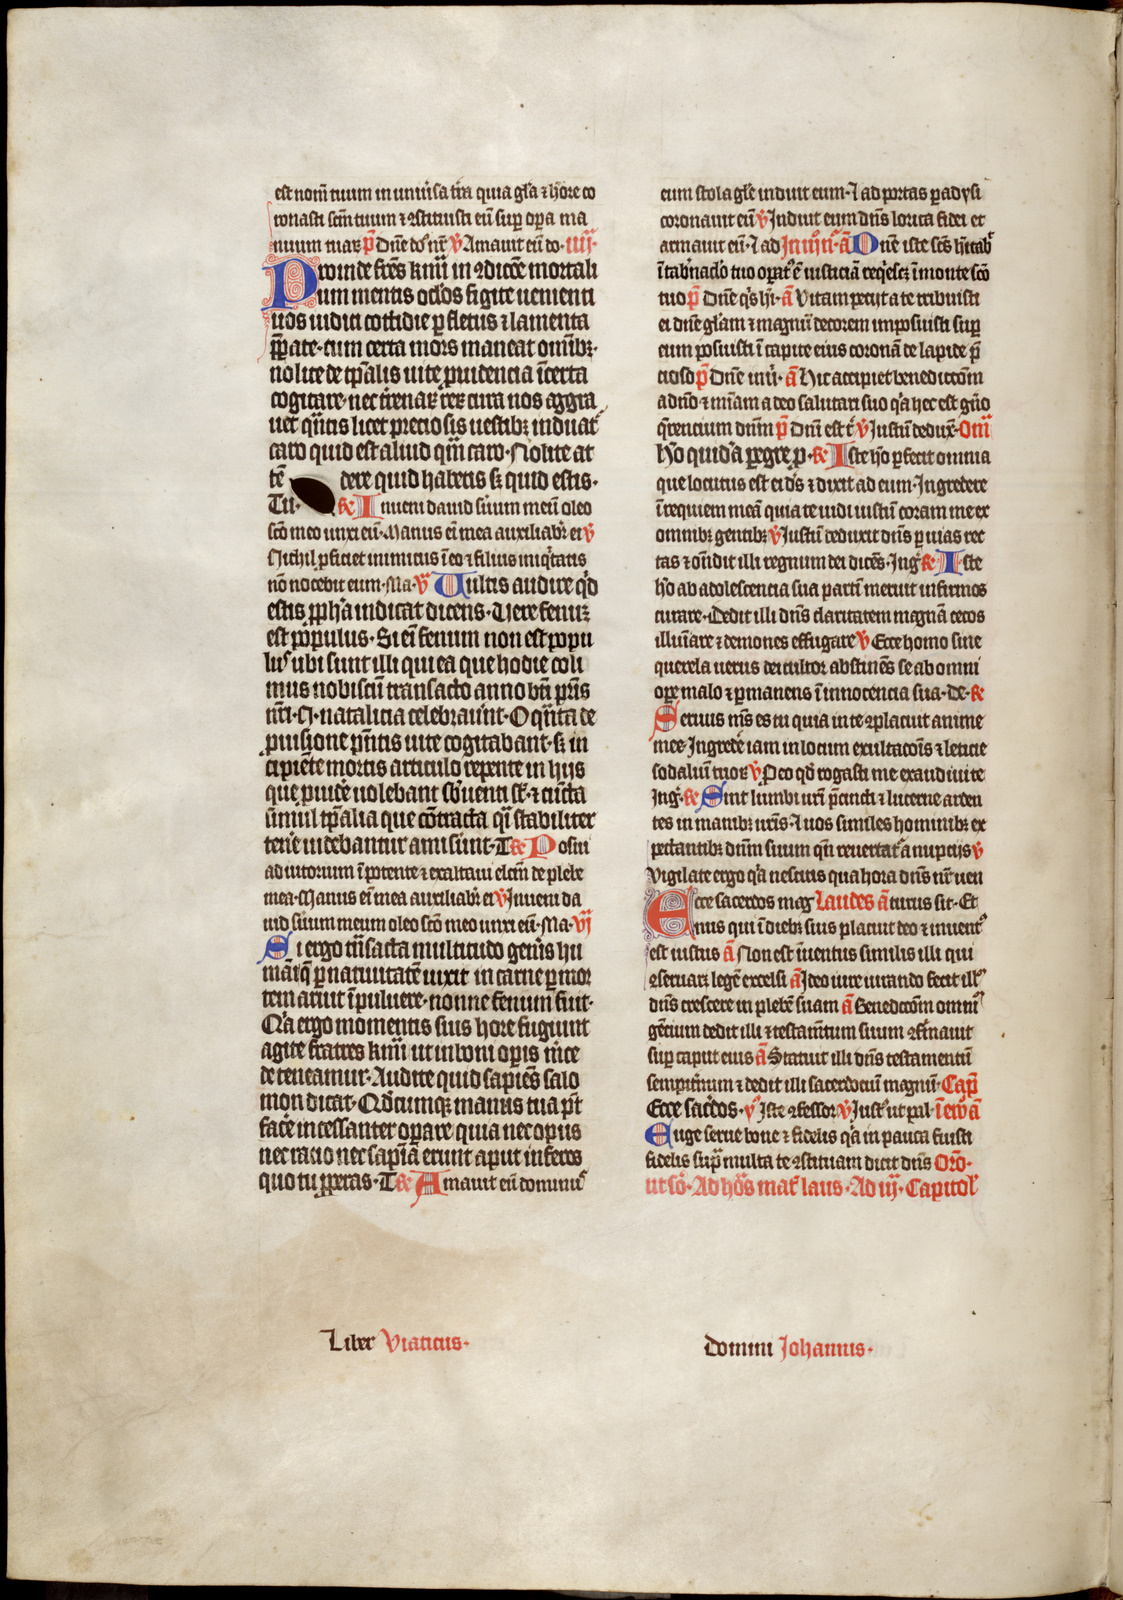 est nom̄ tuum in uniūsa t̄ra quia gl̄a ⁊ ho̅re co
ronasti sc̄m tuum ⁊ ꝯstituisti eū sup̱ op̱a ma
nuum tuaꝝ p̄s Dn̄e do᷒ nr̄ v̓ Amauit eū do· iiij·
Proinde fr̄es kmī in ꝯdic̄oe mortali
um mentis oc̄los figite uementi
uos iudici cottidie ꝑ fletus ⁊ lamenta
pꝑate· cum certa mors maneat omībꝫ·
nolite de tꝑalis uite ꝓuidencia īcerta
cogitare· nec t̄renaꝝ reꝝ cura nos aggra
uet q̄ntis licet preciosis uestibꝫ induat᷑
caro quid est aliud q̄m caro· Nolite at
tē dere quid habetis sꝫ quid estis·
Tu· ℟ Inueni dauid s̄uum meū oleo
sc̄o meo unxi eū· Manus eī mea auxiliabr̄ ei v̓
Nichil ꝓficiet inimicus ī eo ⁊ filius iniq̄tatis
nō nocebit eum· Ma· v̓ Uultis audire qd̄
estis ꝓph̄a indicat dicens· Uere fenuꝫ
est pop̱ulus· Si eī fenum non est popu
lus᷒ ubi sunt illi qui ea que hodie coli
mus nobiscū transacto anno bt̄i pr̄is
nr̄i· N· natalicia celebraūnt· O q̄nta de
ꝓuisione p̄ntis uite cogitabant· sꝫ in
cipiēte mortis articulo repente in hijs
que ꝓuidē nolebant sb̄uenti st̄· ⁊ cūcta
simul tꝑalia que cōtracta q̄si stabiliter
ten̄e uidebantur amisunt· T ℟ Posui
adiutorium ī potente ⁊ exaltaui elcm̄ de plebe
mea· Manus eī mea auxiliabr̄ ei v̓ Inueni da
uid s̄uum meum oleo sc̄o meo unxi eū· Ma· vj
Si ergo tn̄sacta multitudo gen̄is hu
māiq̄ ꝑ natiuitatē uixit in carne ꝑ mor
tem aruit ī puluere· nonne fenum fuit·
Qr̄a ergo momentis suis hore fugiunt
agite fratres kmī ut in boni opis m̄ce
de teneamur· Audite quid sapiēs salo
mon dicat· Qd̄cumqꝫ manus tua pt̄
facē incessanter op̱are quia nec opus
nec racio nec sapīa erunt aput inferos
quo tu ꝓperas· T ℟ Amauit eū dominus᷒
eum stola glē induit eum· ⁊ ad portas ꝑadysi
coronauit eū v̓ Induit eum dn̄s lorica fidei et
armauit eū· ⁊ ad In iij n̄· ā Dn̄e iste sc̄s hītab᷑
ī tab̄naclo tuo op̱at᷒ ē iusticiā reqͥescꝫ ī monte sc̄o
tuo p̄s Dn̄e qͥs hī· ā Vitam petijt a te tribuisti
ei dn̄e glām ⁊ magnū decorem imposuisti sup̱
eum posuisti ī capite eius coronā de lapide p̄
cioso p̄s Dn̄e in ū· ā Hic accipiet benedictōm
a dn̄o ⁊ mīam a deo salutari suo qͥa hec est gn̄o
q̄rencium dn̄m p̄s Dnī est t̄ v̓ Justū deduxꝫ· Om̄
Ho quidā ꝑegre ꝓ· ℟ Iste ho ꝑfecit omnia
que locutus est ei d᷒s ⁊ dixit ad eum· Ingredere
ī requiem meā quia te uidi iustū coram me ex
omnibꝫ gentibꝫ v̓ Justū deduxit dn̄s ꝑ uias rec
tas ⁊ ōndit illi regnum dei dicēs· Ing̱ ℟ Iste
ho ab adolescencia sua partī meruit infirmos
curare· Dedit illi dn̄s claritatem magnā cecos
illuīare ⁊ demones effugare v̓ Ecce homo sine
querela uerus dei cultor abstinēs se ab omni
op̱e malo ⁊ ꝑmanens ī innocencia sua· de· ℟
Seruus m̄s es tu quia in te ꝯplacuit anime
mee· Ingredē iam in locum exultacōis ⁊ leticie
sodaliū tuoꝝ v̓ Pro eo qd̄ rogasti me exaudiui te
Ing̱· ℟ Sint lūmbi ur̄i p̄cincti ⁊ lucerne arden
tes in manibꝫ ur̄is· ⁊ uos similes hominibꝫ ex
pectantibꝫ dn̄m suum qn̄ reuertat᷑ a nupcijs v̓
Vigilate ergo qͥa nescitis qua hora dn̄s ur̄ uen
Ecce sacerdos mag Laudes ā turus sit· Et
nus qui ī dieb᷒ suis placuit deo ⁊ inuent᷒
est iustus ā Non est īuentus similis illi qui
ꝯseruaꝫ legē excelsi ā Ideo iure iurando fecit ill᷒
dn̄s crescere in plebē suam ā Benedictōm omniū
gēcium dedit illi ⁊ testam̄tum suum ꝯfirmauit
sup̱ caput eius ā Statuit illi dn̄s testamentū
sempit̄num ⁊ dedit illi sacerdociū magnū· Cap̄
Ecce sac̄dos· v̓ Iste ꝯfessor v̓ Just᷒ ut pal· ī ew̄ ā
Euge serue bone ⁊ fidelis qͥa in pauca fuisti
fidelis sup̱ multa te ꝯstituam dicit dn̄s Orō·
ut sō· Ad ho᷒s mat̄ laus· Ad iij· Capitol̄
Liber Viaticus·
domini Johannis·